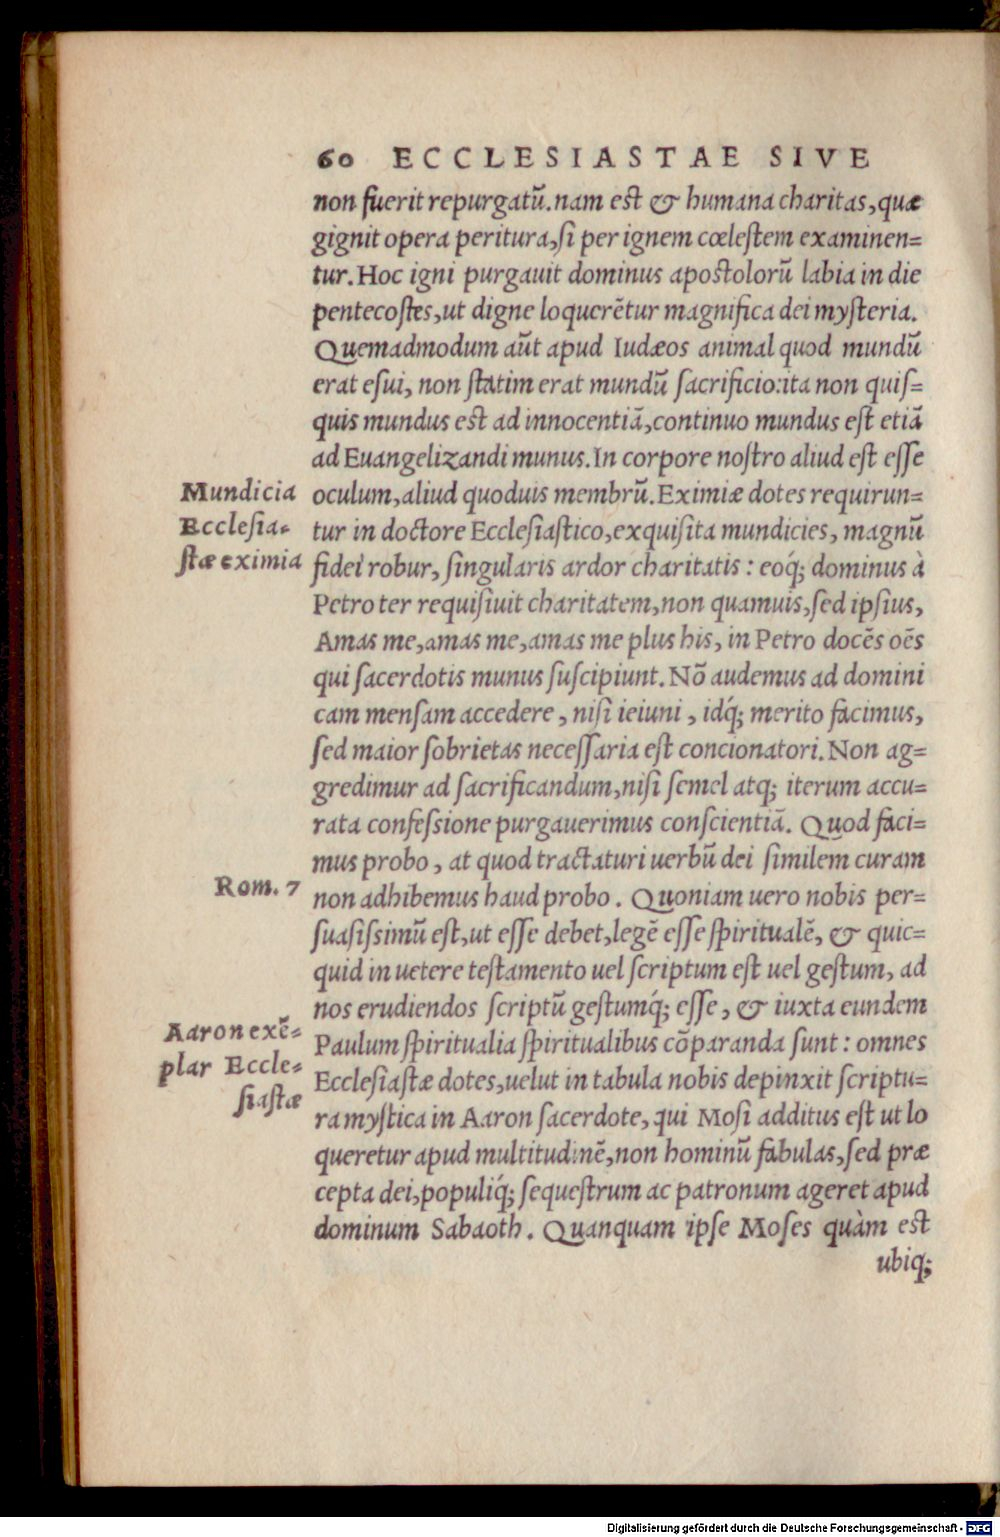 60 ECCLESIASTAE SIVE
non fuerit repurgatū. nam est & humana charitas, quæ
gignit opera peritura, si per ignem cœlestem examinen=
tur. Hoc igni purgauit dominus apostolorū labia in die
pentecostes, ut digne loquerētur magnifica dei mysteria.
Quemadmodum aūt apud Iudæos animal quod mundū
erat esui, non statim erat mundū sacrificio: ita non quis=
quis mundus est ad innocentiā, continuo mundus est etiā
ad Euangelizandi munus. In corpore nostro aliud est esse
Mundicia
Ecclesia-
stæ eximia
oculum, aliud quoduis membrū. Eximiæ dotes requirun=
tur in doctore Ecclesiastico, exquisita mundicies, magnū
fidei robur, singularis ardor charitatis: eoq́; dominus à
Petro ter requisiuit charitatem, non quamuis, sed ipsius,
Amas me, amas me, amas me plus his, in Petro docēs oēs
qui sacerdotis munus suscipiunt. Nō audemus ad domini
cam mensam accedere, nisi ieiuni, idq́; merito facimus,
sed maior sobrietas necessaria est concionatori. Non ag=
gredimur ad sacrificandum, nisi semel atq; iterum accu=
rata confessione purgauerimus conscientiā. Quod faci=
mus probo, at quod tractaturi uerbū dei similem curam
Rom. 7
non adhibemus haud probo. Quoniam uero nobis per=
suasissimū est, ut esse debet, legē esse spiritualē, & quic=
quid in uetere testamento uel scriptum est uel gestum, ad
nos erudiendos scriptū gestumq́; esse, & iuxta eundem
Aaron exē=
plar Eccle=
siastæ
Paulum spiritualia spiritualibus cōparanda sunt: omnes
Ecclesiastæ dotes, uelut in tabula nobis depinxit scriptu=
ra mystica in Aaron sacerdote, qui Mosi additus est ut lo
queretur apud multitudinē, non hominū fabulas, sed præ
cepta dei, populiq́; sequestrum ac patronum ageret apud
dominum Sabaoth. Quanquam ipse Moses quàm est
ubiq;
Digitalisierung gefördert durch die Deutsche Forschungsgemeinschaft - DFG